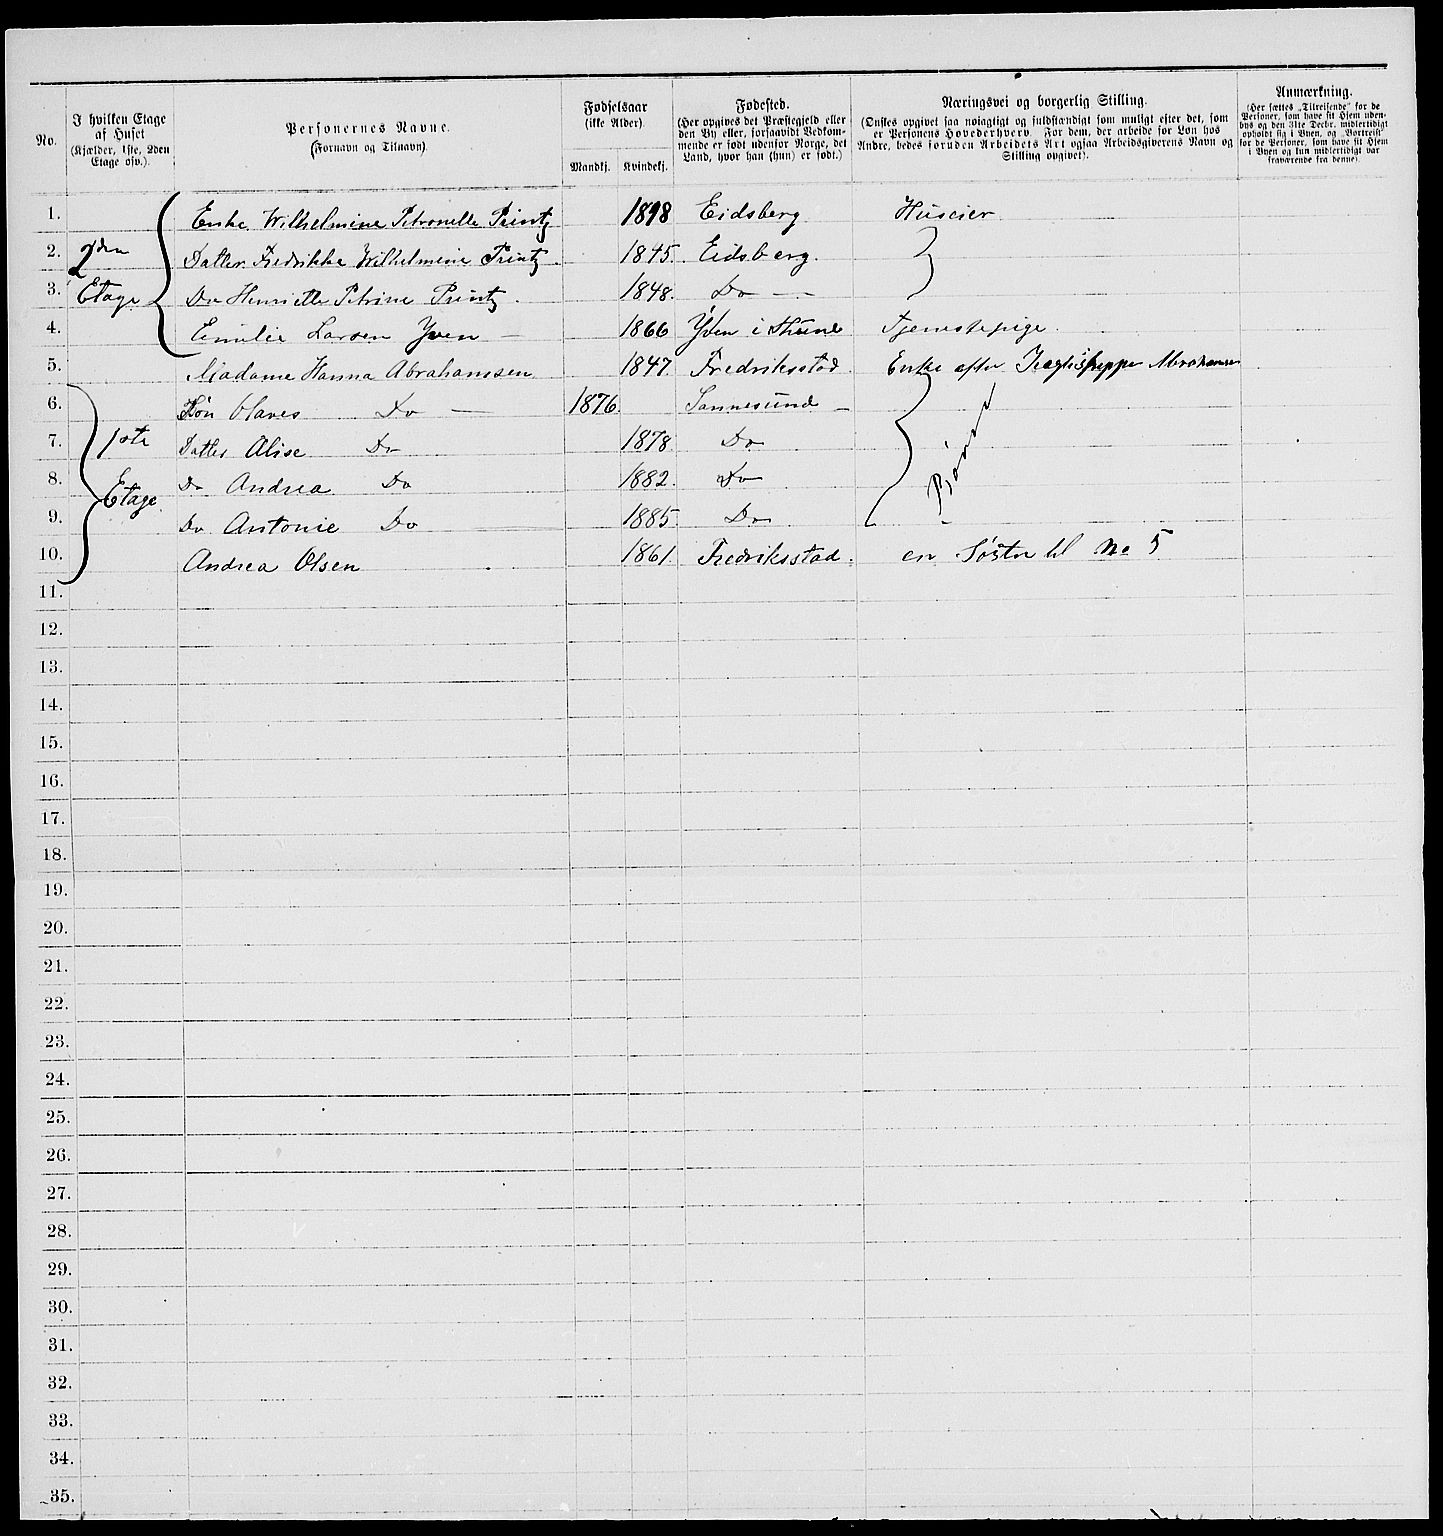 No.
I hvilken Etage af Huset (Kjælder, 1ste, 2den Etage osv.).
Personernes Navne. (Fornavn og Tilnavn).
Fødselsaar (ikke Alder).
Mandkj.
Kvindekj.
Fødested. (Her opgives det Præstegjeld eller den By eller, forsaavidt Vedkommende er født udenfor Norge, det Land, hvor han (hun) er født.)
Næringsvei og borgerlig Stilling. (Ønskes opgivet saa nøiagtigt og fuldstændigt som muligt efter det, som er Personens Hovederhverv. For dem, der arbeide for Løn hos Andre, bedes foruden Arbeidets Art ogsaa Arbeidsgiverens Navn og Stilling opgivet).
Anmærkning. (Her sættes „Tilreisende" for de Personer, som have sit Hjem udenbys og den 31te Decbr. midlertidigt opholdt sig i Byen, og „Bortreist" for de Personer, som have sit Hjem i Byen og kun midlertidigt var fraværende fra denne).
1. Enke Wilhelmine Petronelle Printz 1818 Eidsberg Huseier
2. 2den Datter Fredrikke Wilhelmine Printz 1845. Eidsberg.
3. Etage Do Henriette Petrine Printz. 1848. Do —
4. Emilie Larsen Yven — 1866 Yven i Thune Tjenestepige.
5. Madame Hanna Abrahamsen 1847. Fredriksstad Enke efter Abrahamsen
6. Søn Olaves Do — 1876. Sannesund —
7. 1ste Datter Alise Do 1878. Do
8. Do Andrea Do 1882. Do
Etage.
9. Do Antonie Do 1885. Do
10. Andrea Olsen 1861. Fredriksstad. en Søster til No 5
11.
12.
13.
14.
15.
16.
17.
18.
19.
20.
21.
22.
23.
24.
25.
26.
27.
28.
29.
30.
31.
32.
33.
34.
35.